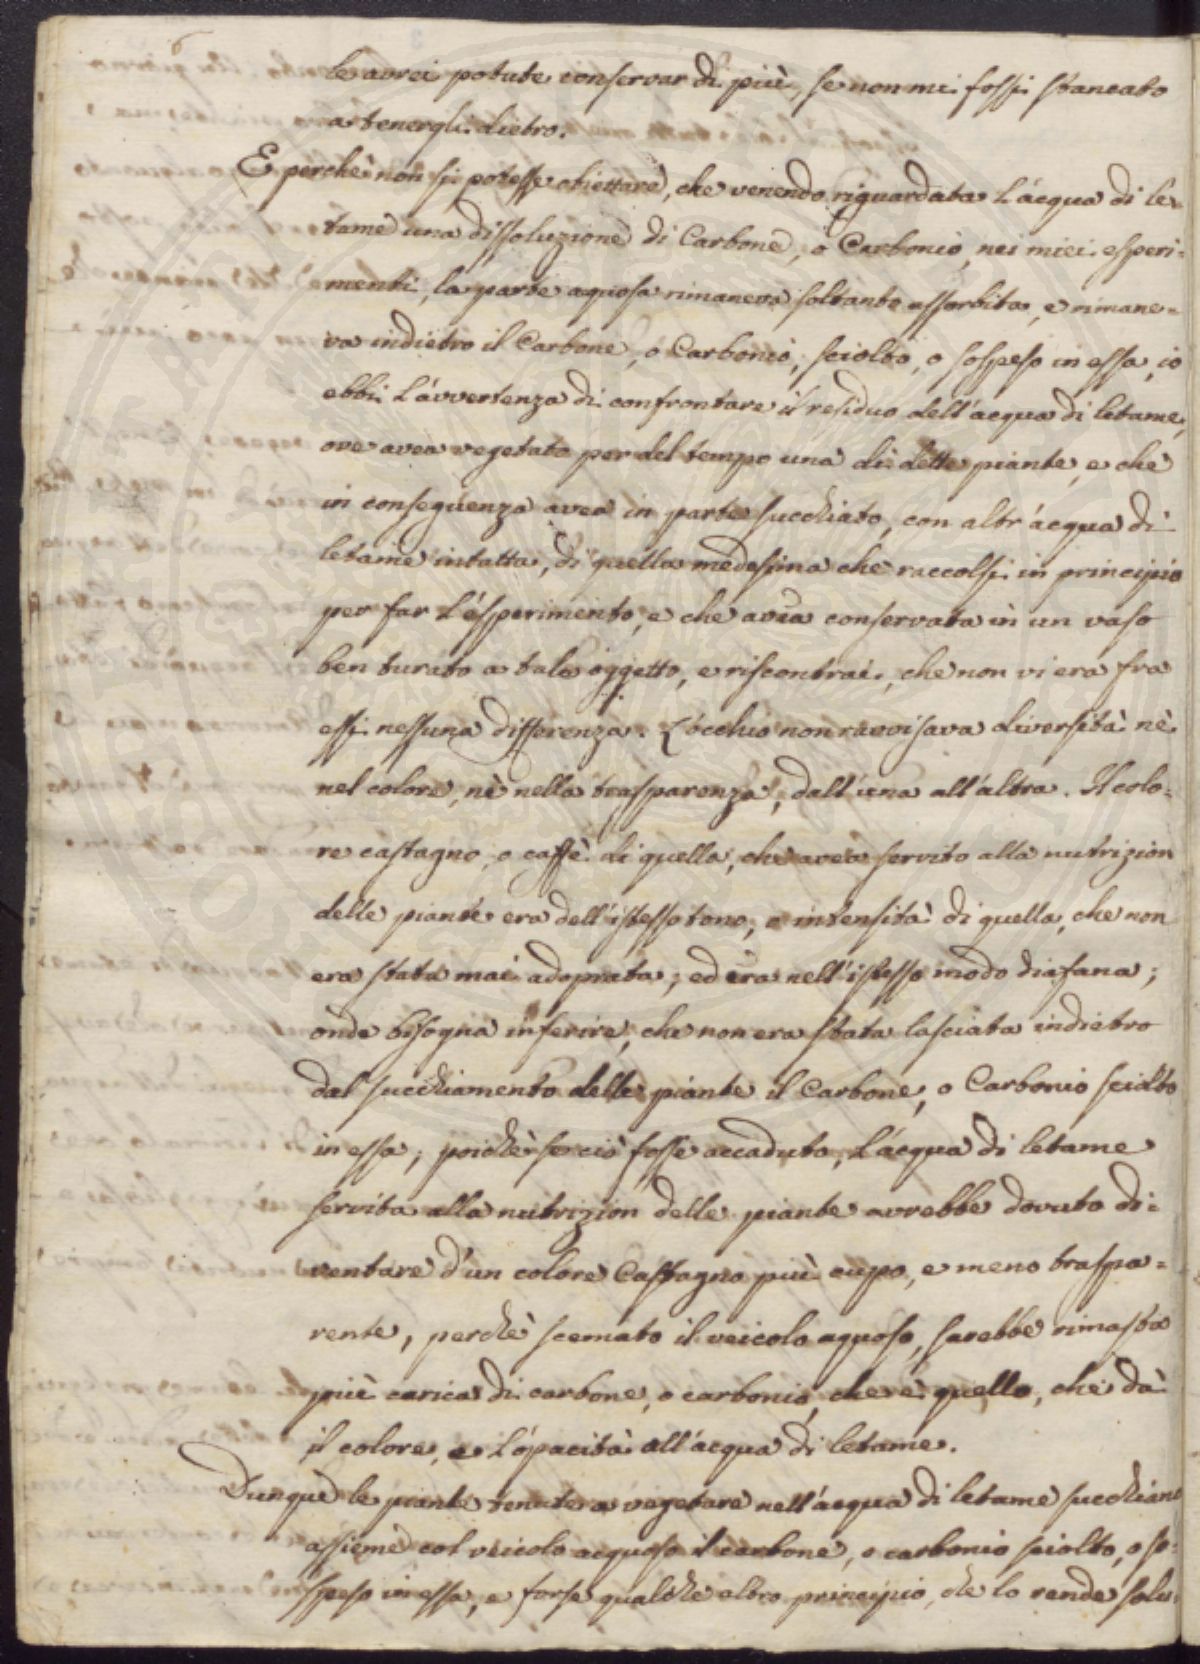 6
le avrei potute conservar di più, se non mi fossi stancato
a tenergli dietro.
E perchè non si potesse obiettare, che venendo riguardata l'acqua di le-
tame una dissoluzione di Carbone, o Carbonio, nei miei esperi-
menti, la parte aquosa rimaneva soltanto assorbita, e rimane-
va indietro il Carbone, o Carbonio, sciolto, o sospeso in essa, io
ebbi l'avvertenza di confrontare il residuo dell'acqua di letame,
ove avea vegetato per del tempo una di dette piante, e che
in conseguenza avea in parte succhiato, con altr'acqua di
letame intatta, di quella medesima che raccolsi in principio
per far l'esperimento, e che avea conservata in un vaso
ben turato a tale oggetto, e riscontrai, che non vi era fra
essi nessuna differenza. L'occhio non ravvisava diversità nè
nel colore, nè nella trasparenza, dall'una all'altra. Il colo-
re castagno, o caffè di quella, che avea servito alla nutrizion
delle piante era dell'istesso tono, e intensità di quella, che non
era stata mai adoprata; ed era nell'istesso modo diafana;
onde bisogna inferire, che non era stata lasciata indietro
dal succhiamento delle piante il Carbone, o Carbonio sciolto
in essa, poichè se ciò fosse accaduto, l'acqua di letame
servita alla nutrizion delle piante avrebbe dovuto di-
ventare d'un colore Castagno più cupo, e meno traspa-
rente, perchè scemato il veicolo aquoso, sarebbe rimasta
più carica di carbone, o carbonio, che è quello, che dà
il colore, e l'opacità all'acqua di letame.
Dunque le piante tenute a vegetare nell'acqua di letame succhiano
assieme col veicolo acquoso il carbone, o carbonio sciolto, o so-
speso in essa, e forse qualche altro principio, che lo rende solu-